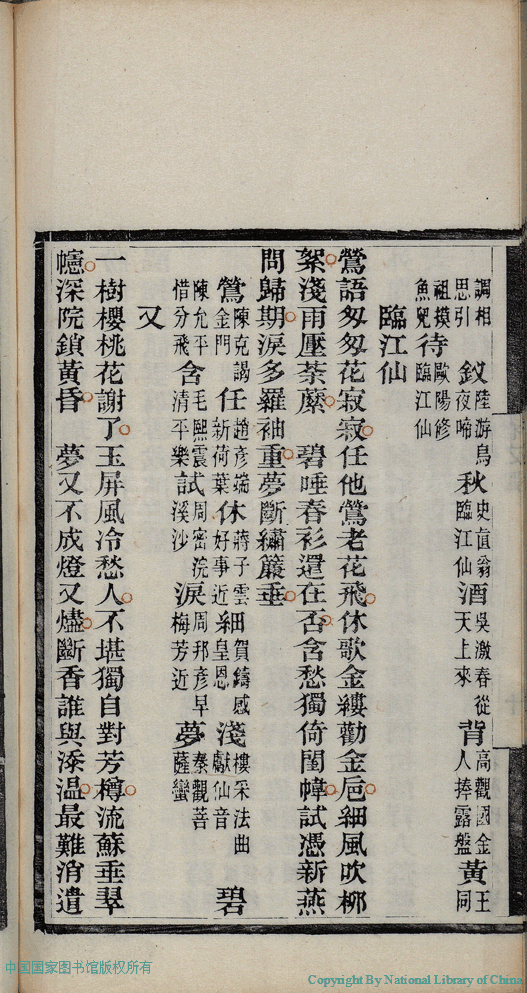 調相思引釵陸游烏夜啼秋史直翁臨江仙酒吳激春從天上來背高觀國金人捧露盤黃王同
祖摸魚兒待歐陽修臨江仙
臨江仙
鶯語匆匆花寂寂任他鶯老花飛休歌金縷勸金巵細風吹柳
絮淺雨壓荼蘼　碧唾春衫還在否含愁獨倚閨幃試憑新燕
問歸期淚多羅袖重夢斷繡簾垂
鶯陳克謁金門任趙彥端新荷葉休蔣子雲好事近細賀鑄感皇恩淺樓采法曲獻仙音碧
陳允平惜分飛含毛熙震清平樂試周密浣溪沙淚周邦彥早梅芳近夢秦觀菩薩蠻
又
一樹櫻桃花謝了玉屏風冷愁人不堪獨自對芳樽流蘇垂翠
幰深院鎖黃昏　夢又不成燈又燼斷香誰與添溫最難消遣
中国国家图书馆版权所有
Copyright By National Library of China